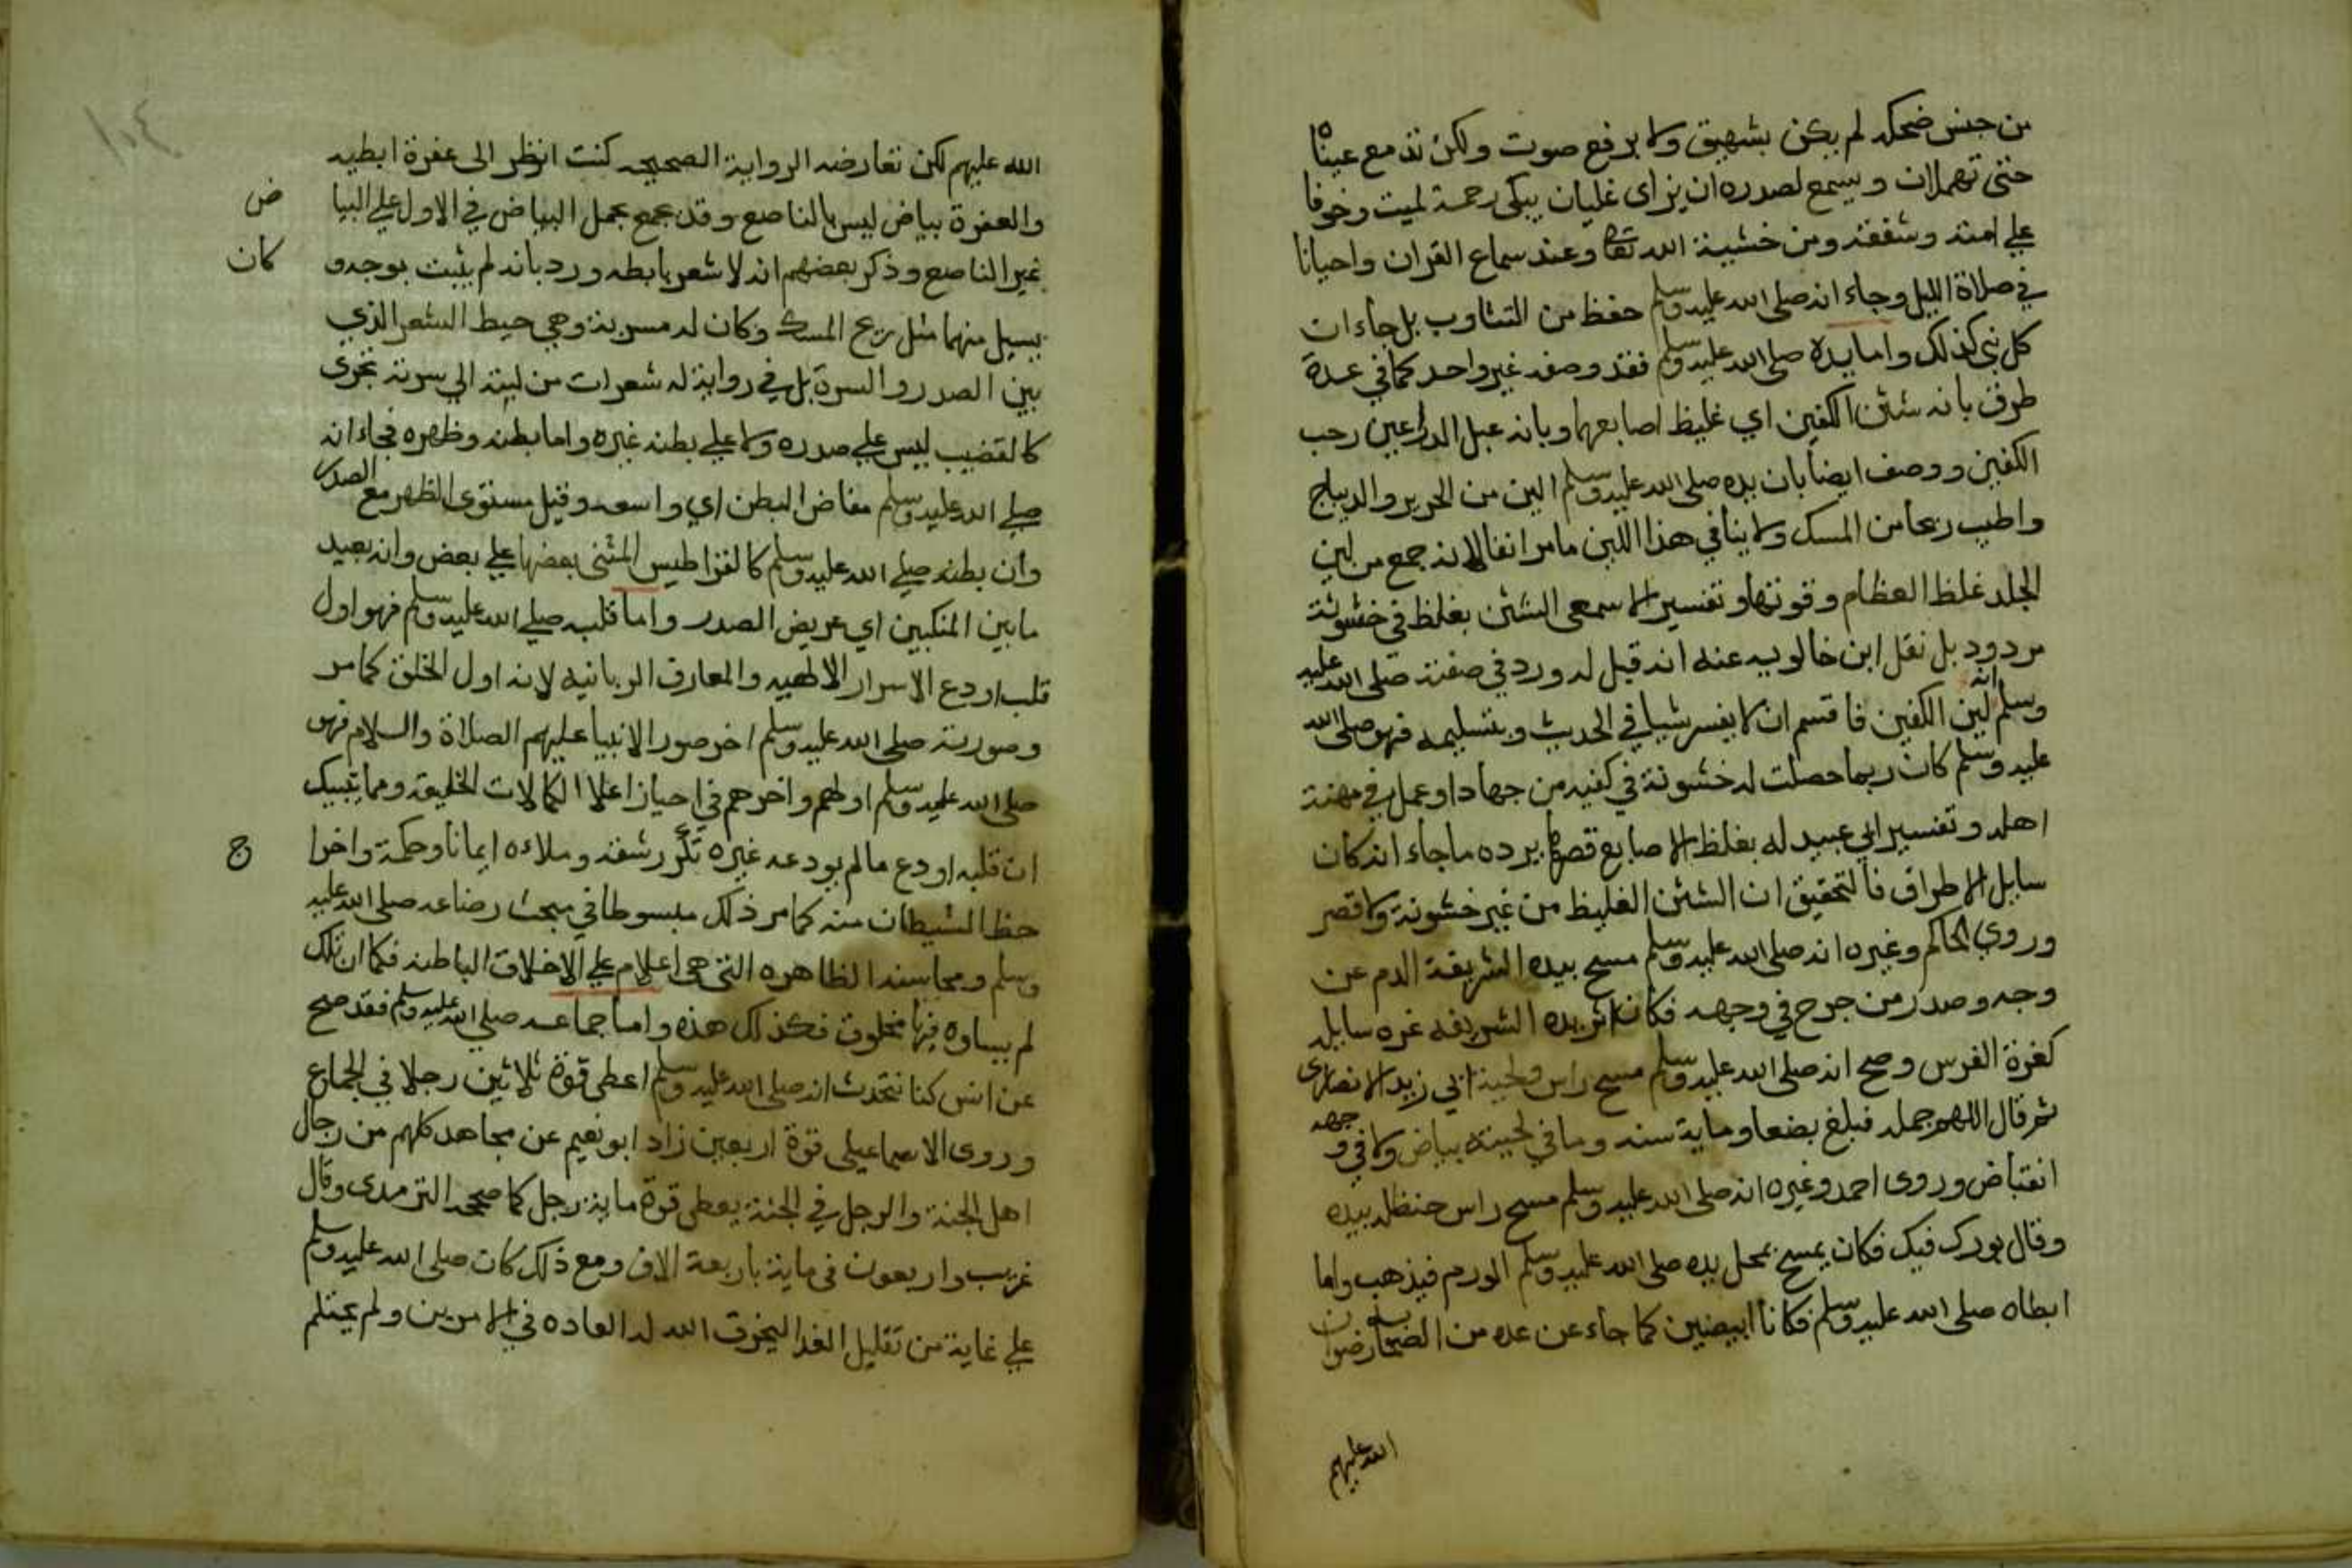 من جنس ضحكه لم يكن بشهيق ولا برفع صوت ولكن تدمع عيناه
حتى تهملان ويسمع لصدره ازيزاى غليان يبكى رحمة لميت وخوفا
على امته وشفقة ومن خشية الله تعا وعند سماع القران واحيانا
في صلاة الليل وجاء انه صلى الله عليه وسلم حفظ من التثاوب بل جاء ان
كل نبى كذلك واما يده صلى الله عليه وسلم فقد وصفه غير واحد كما في عدة
طرق بانه شثن الكفين اي غليظ اصابعهما وبانه عبل الذراعين رحب
الكفين ووصف ايضا بان يده صلى الله عليه وسلم الين من الحرير والديباج
واطيب ريحا من المسك ولا ينافي هذا اللين ما مر انفا لانه جمع من لين
الجلد غلظ العظام وقوتها وتفسير الاسمعى الشثن بغلظ في خشونة
مردود بل نقل ابن خالويه عنه انه قيل له ورد في صفته صلى الله عليه
وسلم انه لين الكفين فاقسم ان لا يفسر شيا في الحديث وبتسليمه فهو صلى الله
عليه وسلم كان ربما حصلت له خشونة في كفيه من جهاد او عمل في مهنة
اهله وتفسير ابي عبيد له بغلظ الاصابع وقصرها يرده ما جاء انه كان
سايل الاطراف فالتحقيق ان الشثن الغليظ من غير خشونة ولا قصر
وروي الحاكم وغيره انه صلى الله عليه وسلم مسح بيده الشريفة الدم عن
وجه وصدر من جرح في وجهه فكان اثر يده الشريفه غره سايله
كغرة الفرس وصح انه صلى الله عليه وسلم مسح راس ولحية ابي زيد الانصارى
ثم قال اللهم جمله فبلغ بضعا وماية سنه وما في لحيته بياض ولا في وجهه
انقباض وروى احمد وغيره انه صلى الله عليه وسلم مسح راس حنظله بيده
وقال بورك فيك فكان يمسح بمحل يده صلى الله عليه وسلم الورم فيذهب واما
ابطاه صلى الله عليه وسلم فكانا ابيضين كما جاء عن عده من الصحابه رضوان
الله عليهم
١٠٤
الله عليهم لكن تعارضه الرواية الصحيحه كنت انظر الى عفرة ابطيه
والعفرة بياض ليس بالناصع وقد يجمع بحمل البياض في الاول على البيا ض
غير الناصع وذكر بعضهم انه لا شعر بابطه ورد بانه لم يثبت بوجه و كان
يسيل منهما مثل ريح المسك وكان له مسربة وهي خيط الشعر الذي
بين الصدر والسرة بل في رواية له شعرات من لبته الي سرته تجرى
كالقضيب ليس على صدره ولا علي بطنه غيره واما بطنه وظهره فجاء انه
صلى الله عليه وسلم مفاض البطن اي واسعه وقيل مستوى الظهر مع الصدر
وان بطنه صلي الله عليه وسلم كالقراطيس المثنى بعضها علي بعض وانه بعيد
ما بين المنكبين اي عريض الصدر واما قلبه صلي الله عليه وسلم فهو اول
قلب اودع الاسرار الالهيه والمعارف الربانيه لانه اول الخلق كما مر
وصورته صلى الله عليه وسلم اخر صور الانبيا عليهم الصلاة والسلام فهو
صلى الله عليه وسلم اولهم واخرهم في احياز اعلا الكمالات الخليقة ومما ينبيك
ان قلبه اودع ما لم يودعه غيره تكرر شقه وملاءه ايمانا وحكمة واخرا ج
حظ الشيطان منه كما مر ذلك مبسوطا في مبحث رضاعه صلى الله عليه
وسلم ومحاسنه الظاهره التى هى اعلام على الاخلاق الباطنه فكما ان تلك
لم يساوه فيها مخلوق فكذلك هذه واما جماعه صلي الله عليه وسلم فقد صح
عن انس كنا نتحدث انه صلى الله عليه وسلم اعطى قوة ثلاثين رجلا في الجماع
وروى الاسماعيلى قوة اربعين زاد ابو نعيم عن مجاهد كلهم من رجال
اهل الجنة والرجل في الجنة يعطى قوة ماية رجل كما صححه الترمدى وقال
غريب واربعون فى ماية باربعة الاف ومع ذلك كان صلى الله عليه وسلم
على غاية من تقليل الغدا ليخرق الله له العاده في الامرين ولم يحتلم